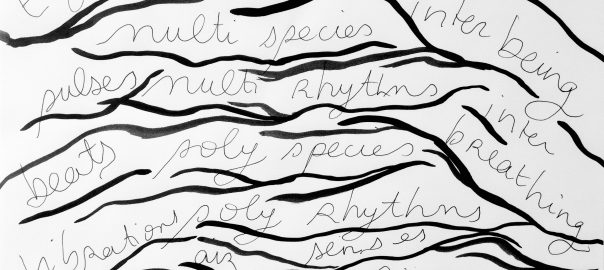 multi species
inter being
pulses multi rhythms
inter
beats poly species
breathing
vibrations poly rhythms
senses